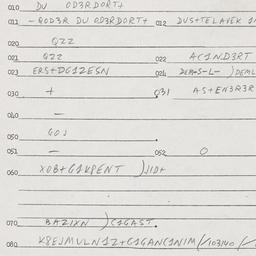 010 DU OD3RDORT+
011 -QOD3R DU OD3RDORT+ 012 DUS+TELAVEK
020 QZZ
021 QZZ 022 AC1ND3RT
023 ERS+DG12ESN 024
030 + 031 AS+EN3R3R
040 —
GOJ
050
051 — 052 O
060 XOB+G1K8ENT )JID+
070 BAZIXN )C1GAST.
080 K8EJMULN1Z+C1GANC1N1M/103140/